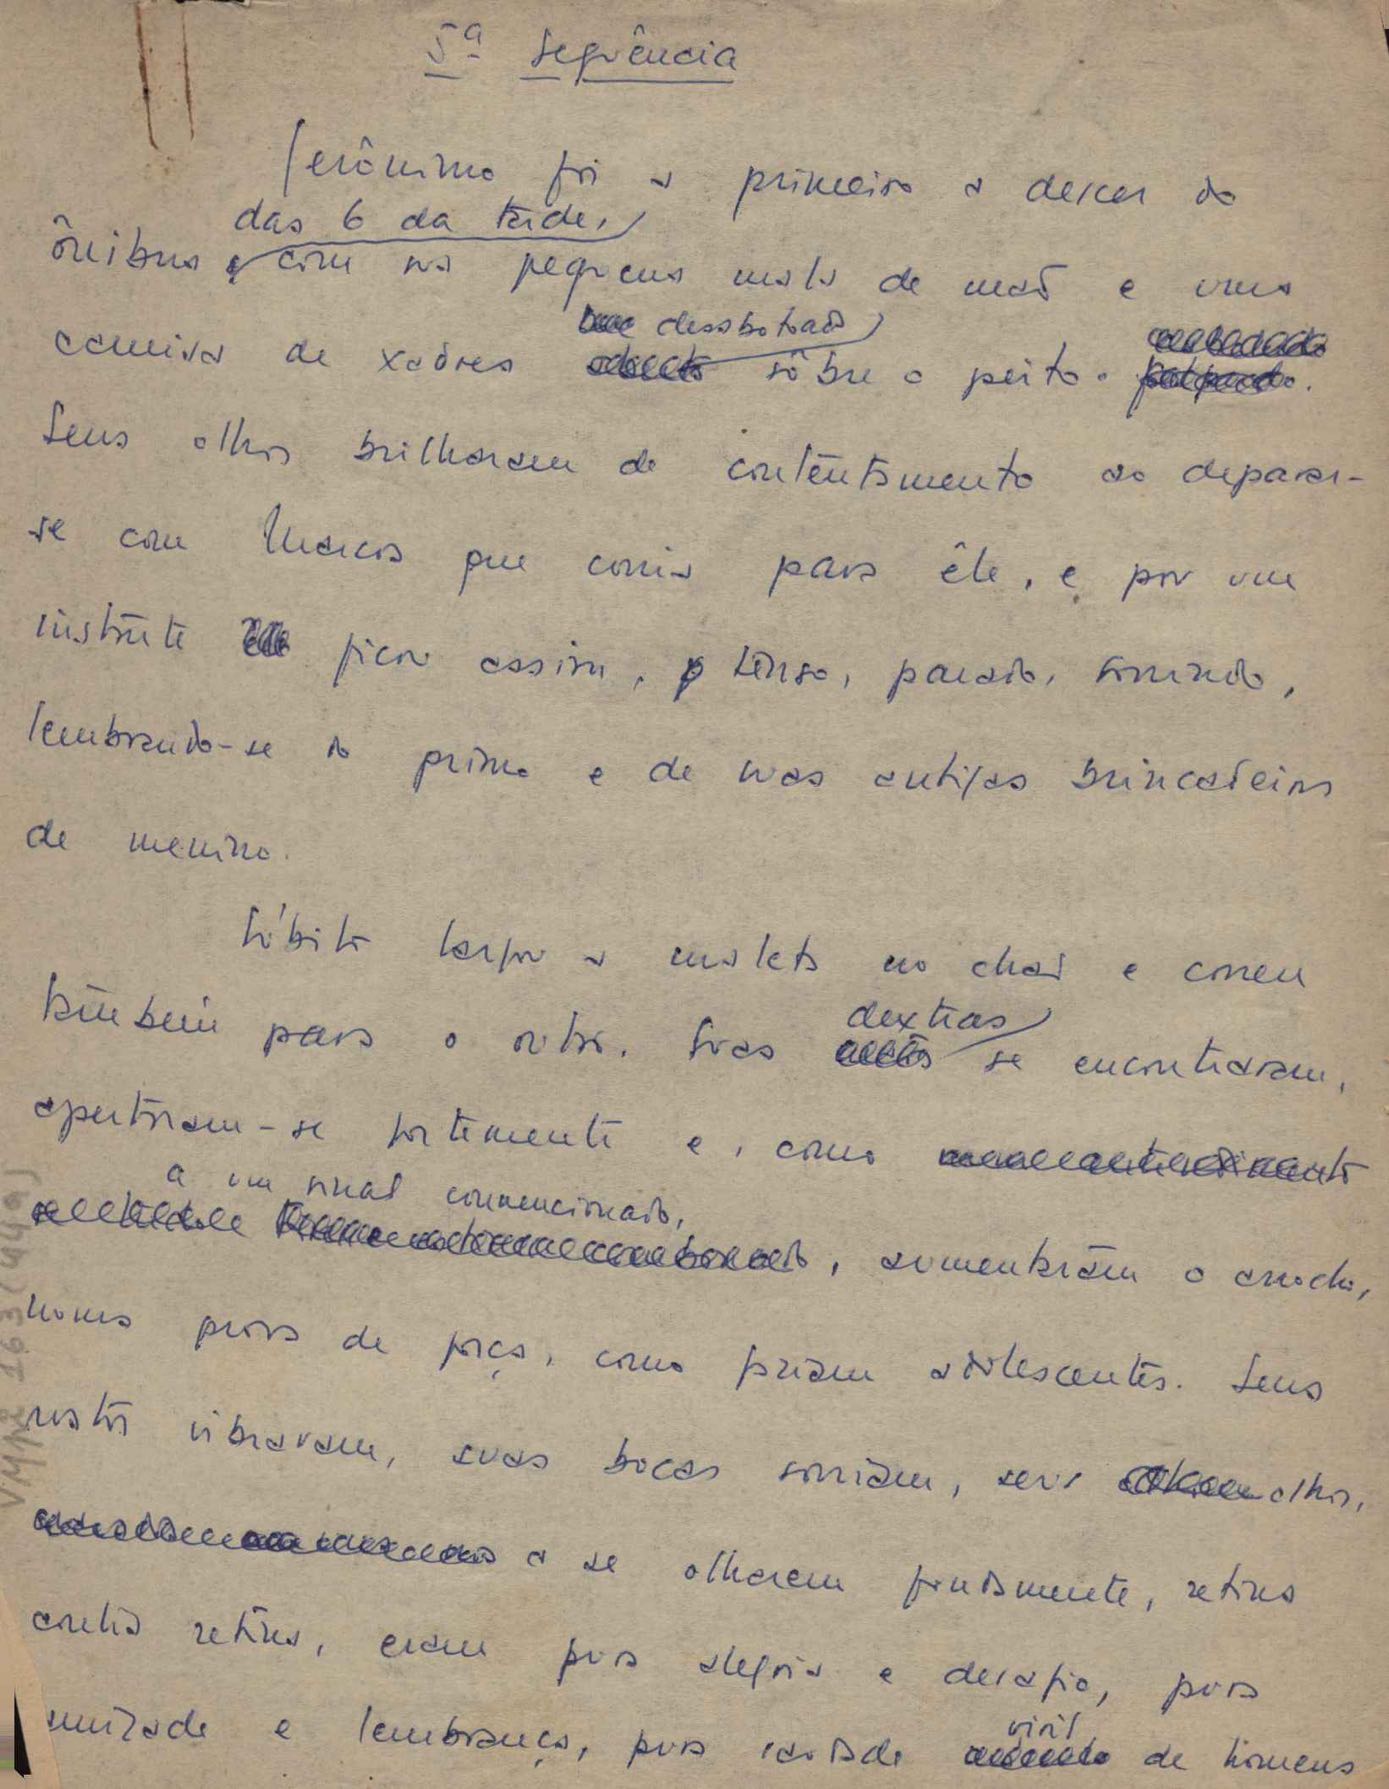 5ª Seqüência
Jerônimo foi o primeiro a descer do
das 6 da tarde,
ônibus, com sua pequena mala de mão e uma
desbotado
camisa de xadrez sôbre o peito.
Seus olhos brilharam de contentamento ao deparar-
se com Marcos que corria para êle, e por um
instante ficou assim, tenso, parado, sorrindo,
lembrando-se do primo e de suas antigas brincadeiras
de menino.
Súbito largou a maleta no chão e correu
também para o outro. Suas dextras se encontraram,
apertaram-se fortemente e, como
a um sinal convencionado,
, aumentaram o arrocho,
numa prova de força, como faziam adolescentes. Seus
rostos vibravam, suas bocas sorriam, seus olhos,
a se olharem fundamente, retina
contra retina, eram pura alegria e desafio, pura
amizade e lembrança, pura idade
viril
de homens
VMPi 163 (449)